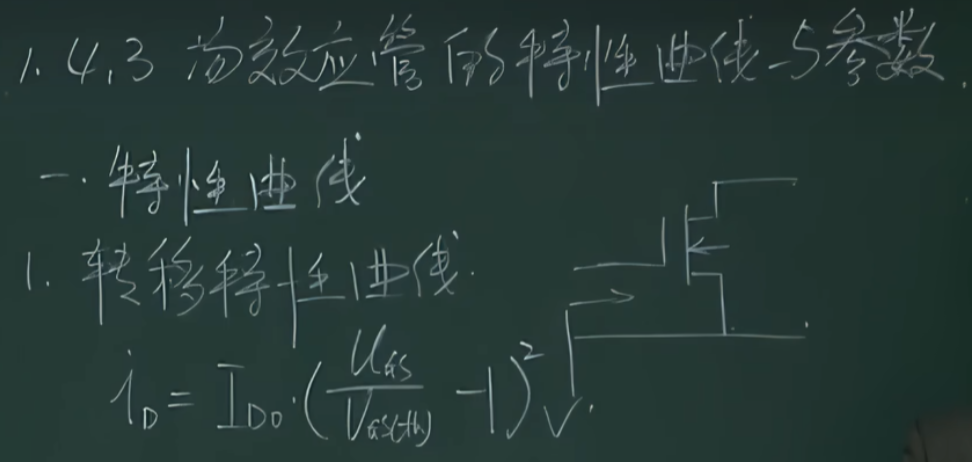 1.4.3 场效应管的特性曲线与参数.
一. 特性曲线
1. 转移特性曲线.
i_D = I_{D0}·(u_{GS}/U_{GS(th)} - 1)^2